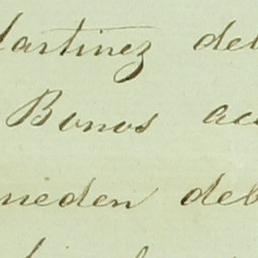 Martinez del
Bonos ac
neden deb